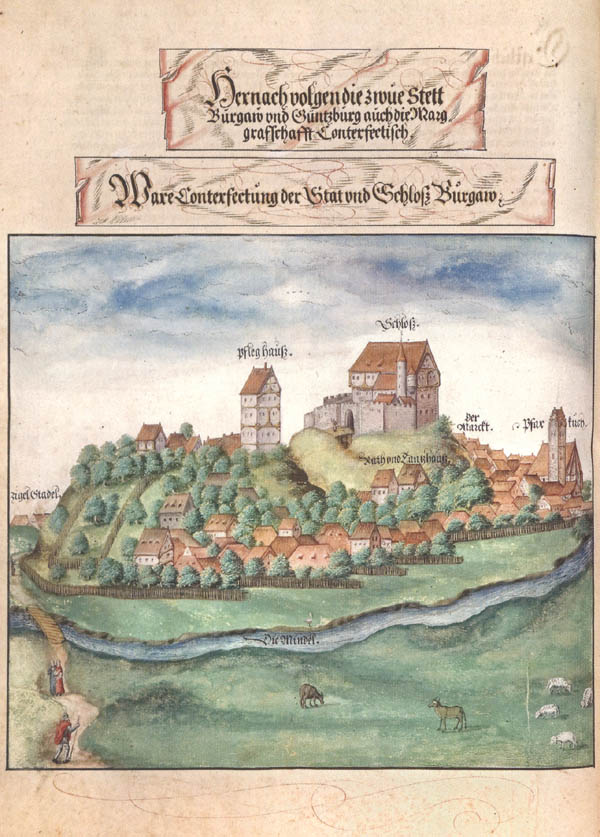 Hernach volgen die zwue Stett
Burgaw vnd Güntzburg auch die Marg
graffschafft Conterfectisch.
Ware Conterfectung der Stat vnd Schloß Burgaw.
Schloß.
Pfleghauß.
der Marckt.
Pfarkirch.
Rath vnd Tantzhauß.
Zigel Stadel.
Die Mindel.